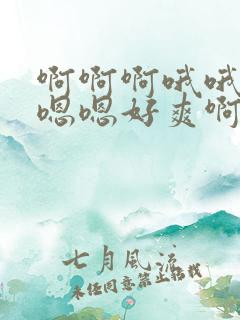 啊啊啊哦哦
嗯嗯好爽啊
七月风流
未经同意禁止转载